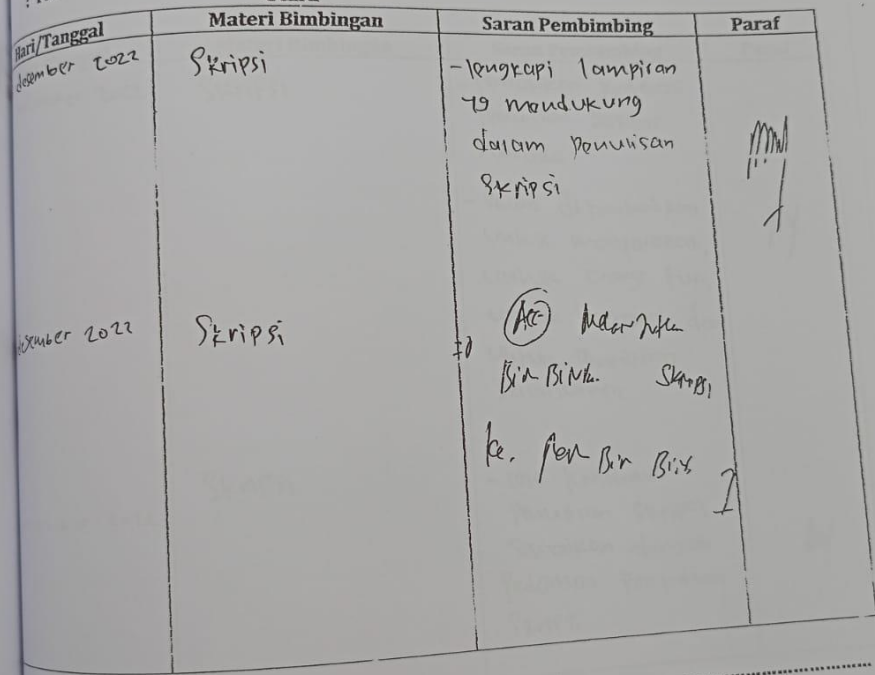 Hari/Tanggal Materi Bimbingan Saran Pembimbing Paraf
desember 2022 Skripsi -lengkapi lampiran
yg mendukung
dalam penulisan
Skripsi
desember 2022 Skripsi Acc
BimBinG. Skripsi
ke. Pem Bim Bing I